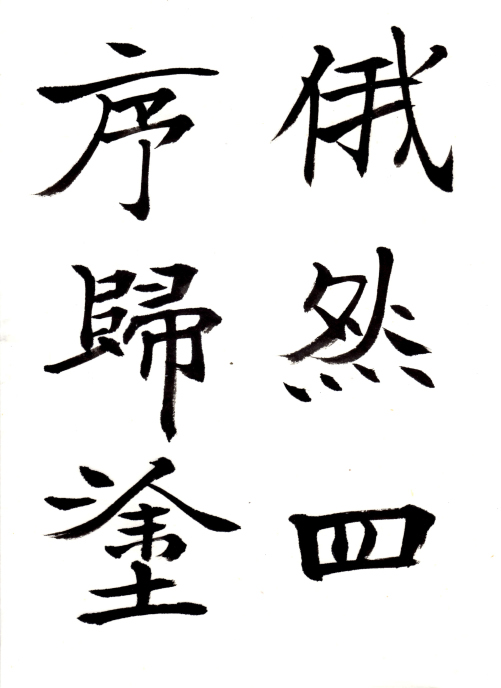 俄然四
序歸塗